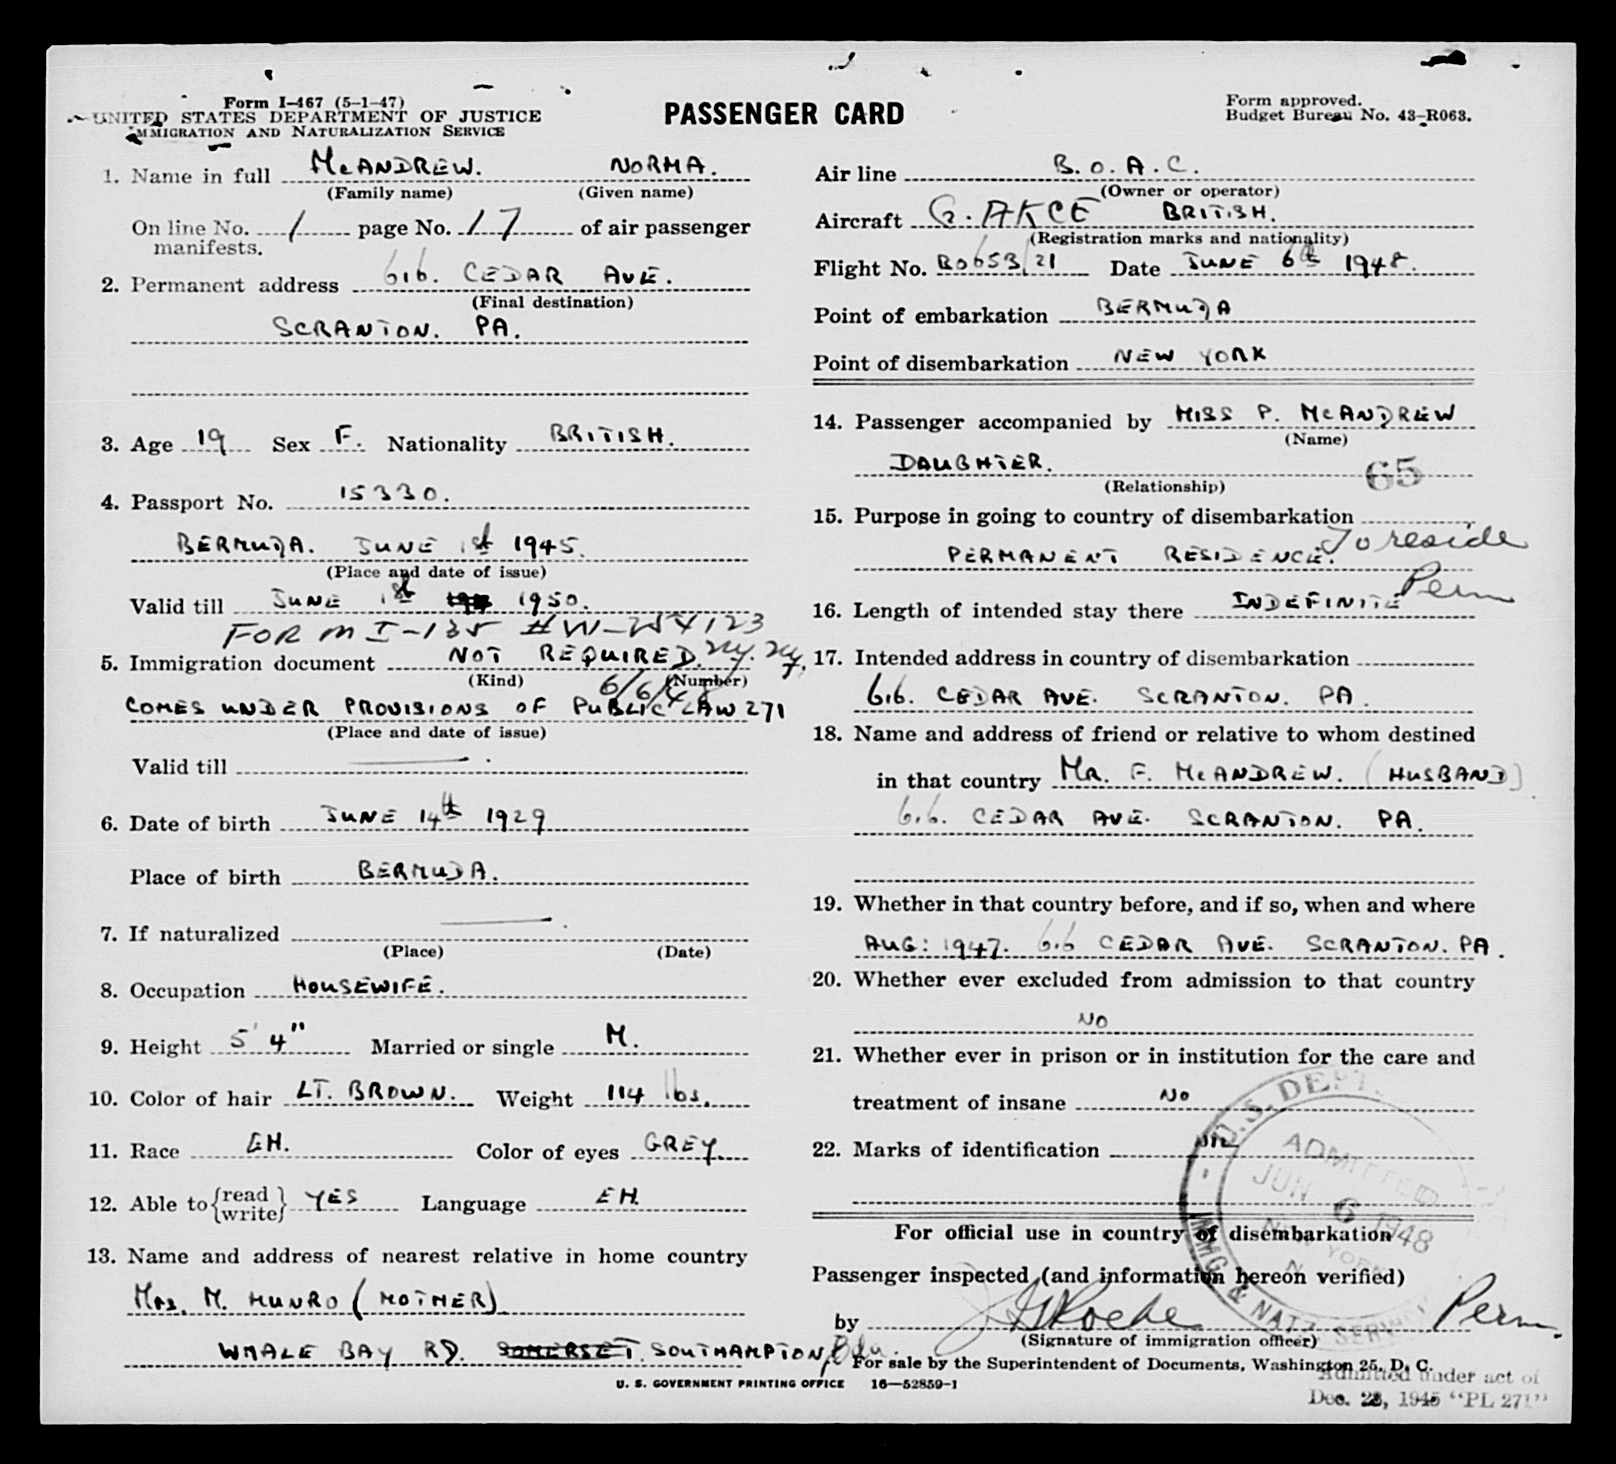 Form I-467 (5-1-47)
UNITED STATES DEPARTMENT OF JUSTICE
IMMIGRATION AND NATURALIZATION SERVICE
PASSENGER CARD
Form approved.
Budget Bureau No. 43-R063.
1. Name in full McANDREW. NORMA.
(Family name) (Given name)
On line No. 1 page No. 17 of air passenger
manifests.
2. Permanent address 616. CEDAR AVE.
(Final destination)
SCRANTON. PA.
3. Age 19 Sex F. Nationality BRITISH.
4. Passport No. 15330.
BERMUDA. JUNE 1st 1945.
(Place and date of issue)
Valid till JUNE 1st 1950.
FORM I-135 #W-254123
5. Immigration document NOT REQUIRED. NY. NY.
(Kind) 6/6/48 (Number)
COMES UNDER PROVISIONS OF PUBLIC LAW 271
(Place and date of issue)
Valid till
6. Date of birth JUNE 14th 1929
Place of birth BERMUDA.
7. If naturalized
(Place) (Date)
8. Occupation HOUSEWIFE.
9. Height 5' 4" Married or single M.
10. Color of hair LT. BROWN. Weight 114 lbs.
11. Race EH. Color of eyes GREY.
12. Able to {read write} YES Language EH.
13. Name and address of nearest relative in home country
MRS. M. MUNRO (MOTHER)
WHALE BAY RD. SOMERSET. SOUTHAMPTON, Bda.
U. S. GOVERNMENT PRINTING OFFICE 16—52859-1
Air line B.O.A.C.
(Owner or operator)
Aircraft G. AKCE BRITISH.
(Registration marks and nationality)
Flight No. BO653/21 Date JUNE 6th 1948.
Point of embarkation BERMUDA
Point of disembarkation NEW YORK
14. Passenger accompanied by MISS P. McANDREW
(Name)
DAUGHTER. 65
(Relationship)
15. Purpose in going to country of disembarkation
PERMANENT RESIDENCE. To reside
16. Length of intended stay there INDEFINITE Perm
17. Intended address in country of disembarkation
616. CEDAR AVE. SCRANTON. PA.
18. Name and address of friend or relative to whom destined
in that country MR. F. McANDREW. (HUSBAND)
616. CEDAR AVE. SCRANTON. PA.
19. Whether in that country before, and if so, when and where
AUG: 1947. 616 CEDAR AVE. SCRANTON. PA.
20. Whether ever excluded from admission to that country
NO
21. Whether ever in prison or in institution for the care and
treatment of insane NO
22. Marks of identification NIL
U.S. DEPT.
ADMITTED
JUN 6 1948
NEW YORK
N
IMMG & NATZ SERVICE
For official use in country of disembarkation
Passenger inspected (and information hereon verified)
by J G Roche Perm.
(Signature of immigration officer)
For sale by the Superintendent of Documents, Washington 25, D. C.
Admitted under act of
Dec. 28, 1945 "PL 271"